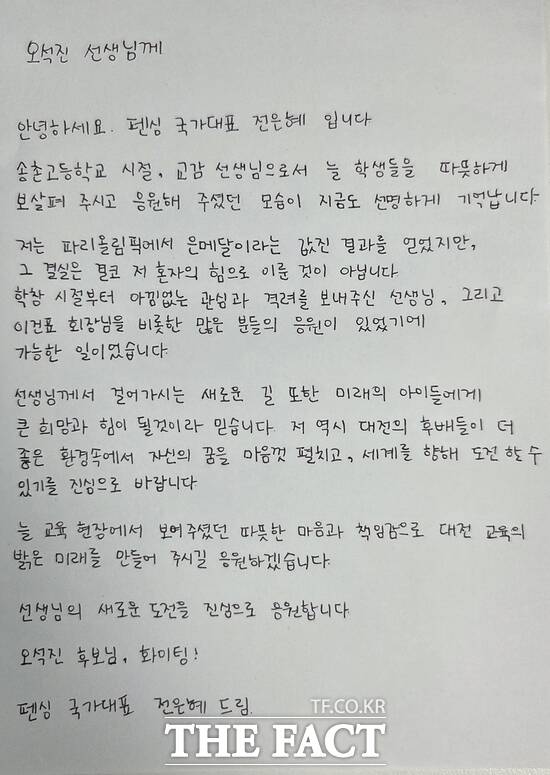 오석진 선생님께
안녕하세요. 펜싱 국가대표 전은혜 입니다
송촌고등학교 시절, 교감 선생님으로서 늘 학생들을 따뜻하게
보살펴 주시고 응원해 주셨던 모습이 지금도 선명하게 기억납니다.
저는 파리올림픽에서 은메달이라는 값진 결과를 얻었지만,
그 결실은 결코 저 혼자의 힘으로 이룬 것이 아닙니다
학창 시절부터 아낌없는 관심과 격려를 보내주신 선생님, 그리고
이건표 회장님을 비롯한 많은 분들의 응원이 있었기에
가능한 일이었습니다.
선생님께서 걸어가시는 새로운 길 또한 미래의 아이들에게
큰 희망과 힘이 될것이라 믿습니다. 저 역시 대전의 후배들이 더
좋은 환경속에서 자신의 꿈을 마음껏 펼치고, 세계를 향해 도전 할 수
있기를 진심으로 바랍니다
늘 교육 현장에서 보여주셨던 따뜻한 마음과 책임감으로 대전 교육의
밝은 미래를 만들어 주시길 응원하겠습니다.
선생님의 새로운 도전을 진심으로 응원합니다
오석진 후보님, 화이팅!
펜싱 국가대표 전은혜 드림.
TF.CO.KR
THE FACT